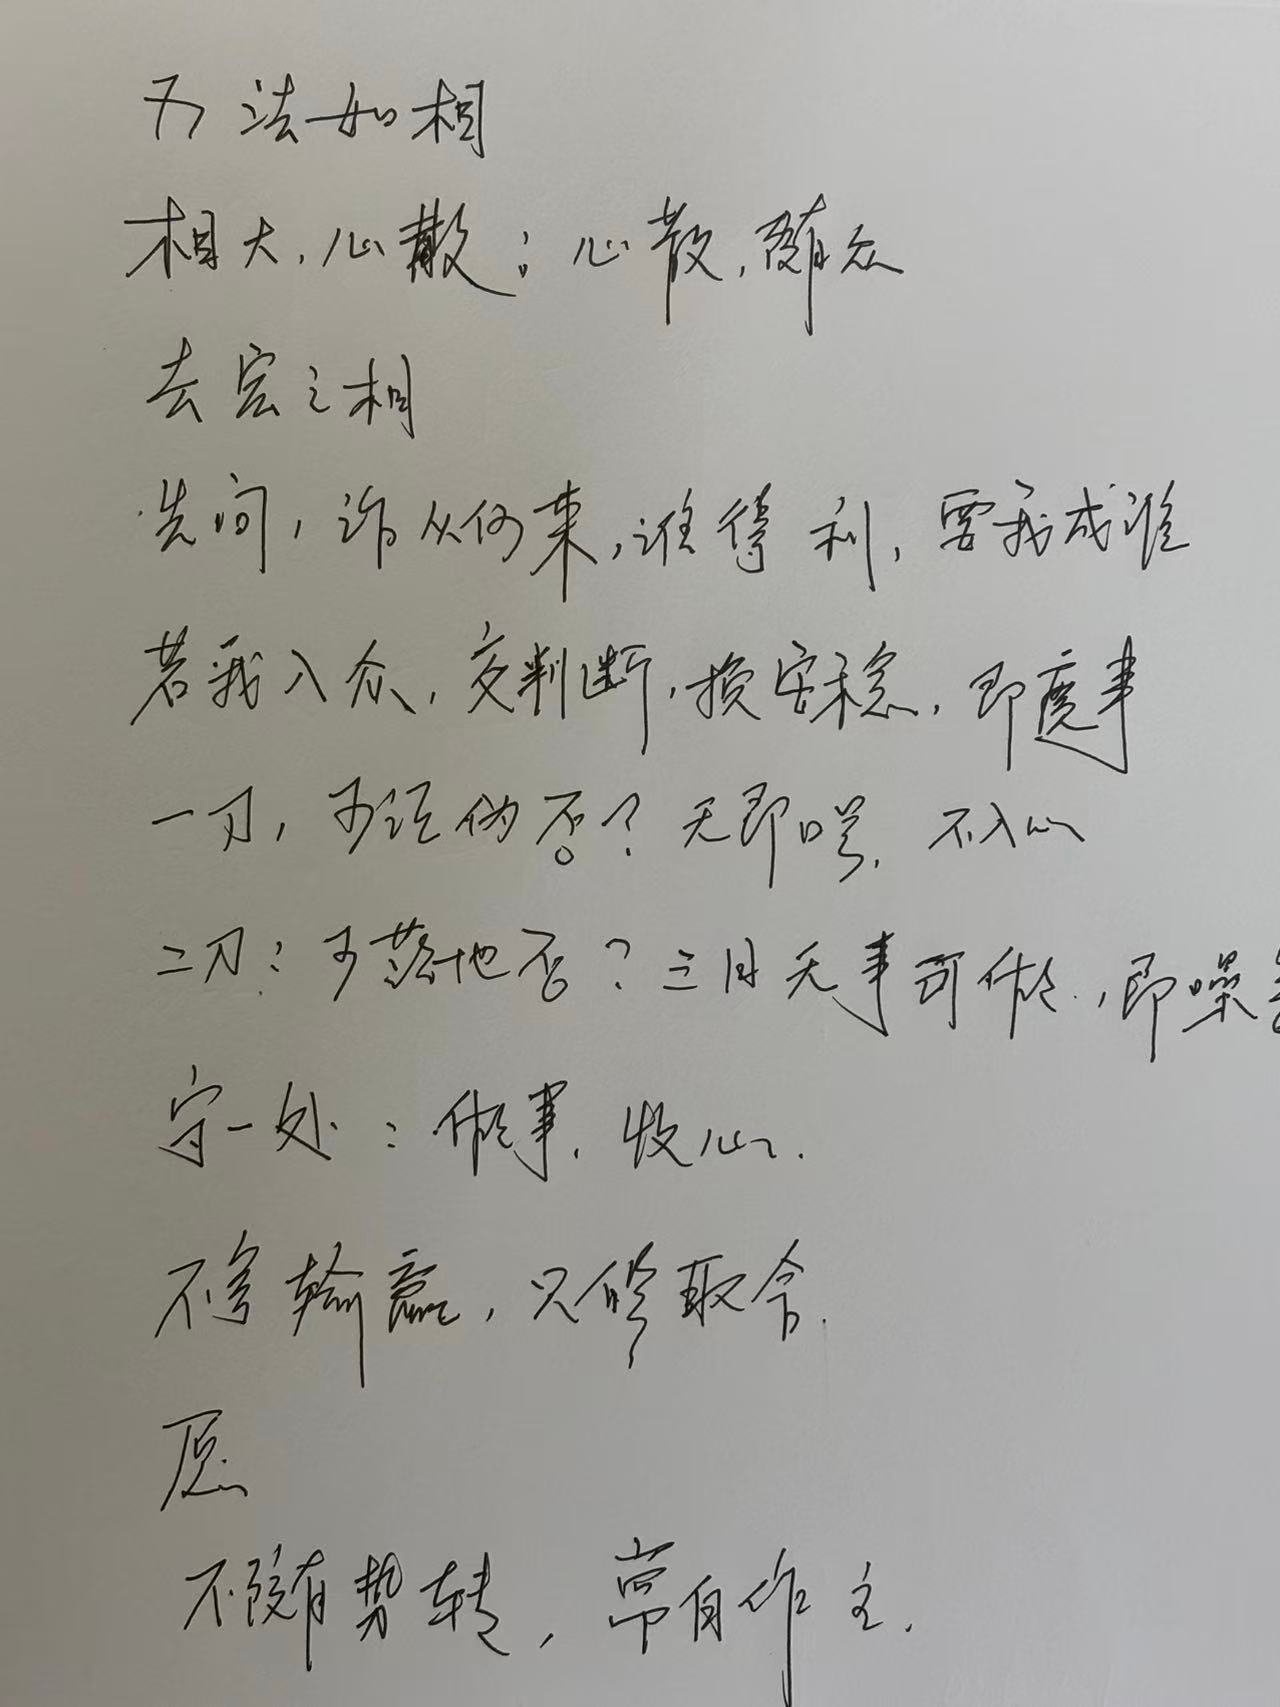 万法如相
相大,心散;心散,随众
去宏之相
先问,诈从何来,谁得利,要我成谁
若我入众,交判断,损安稳,即魔事
一刀,可证伪否?无即噪,不入心
二刀:可落地否?三日无事可做,即噪
守一处:做事.收心.
不修输赢,只修取舍.
愿
不随势转,常自作主.